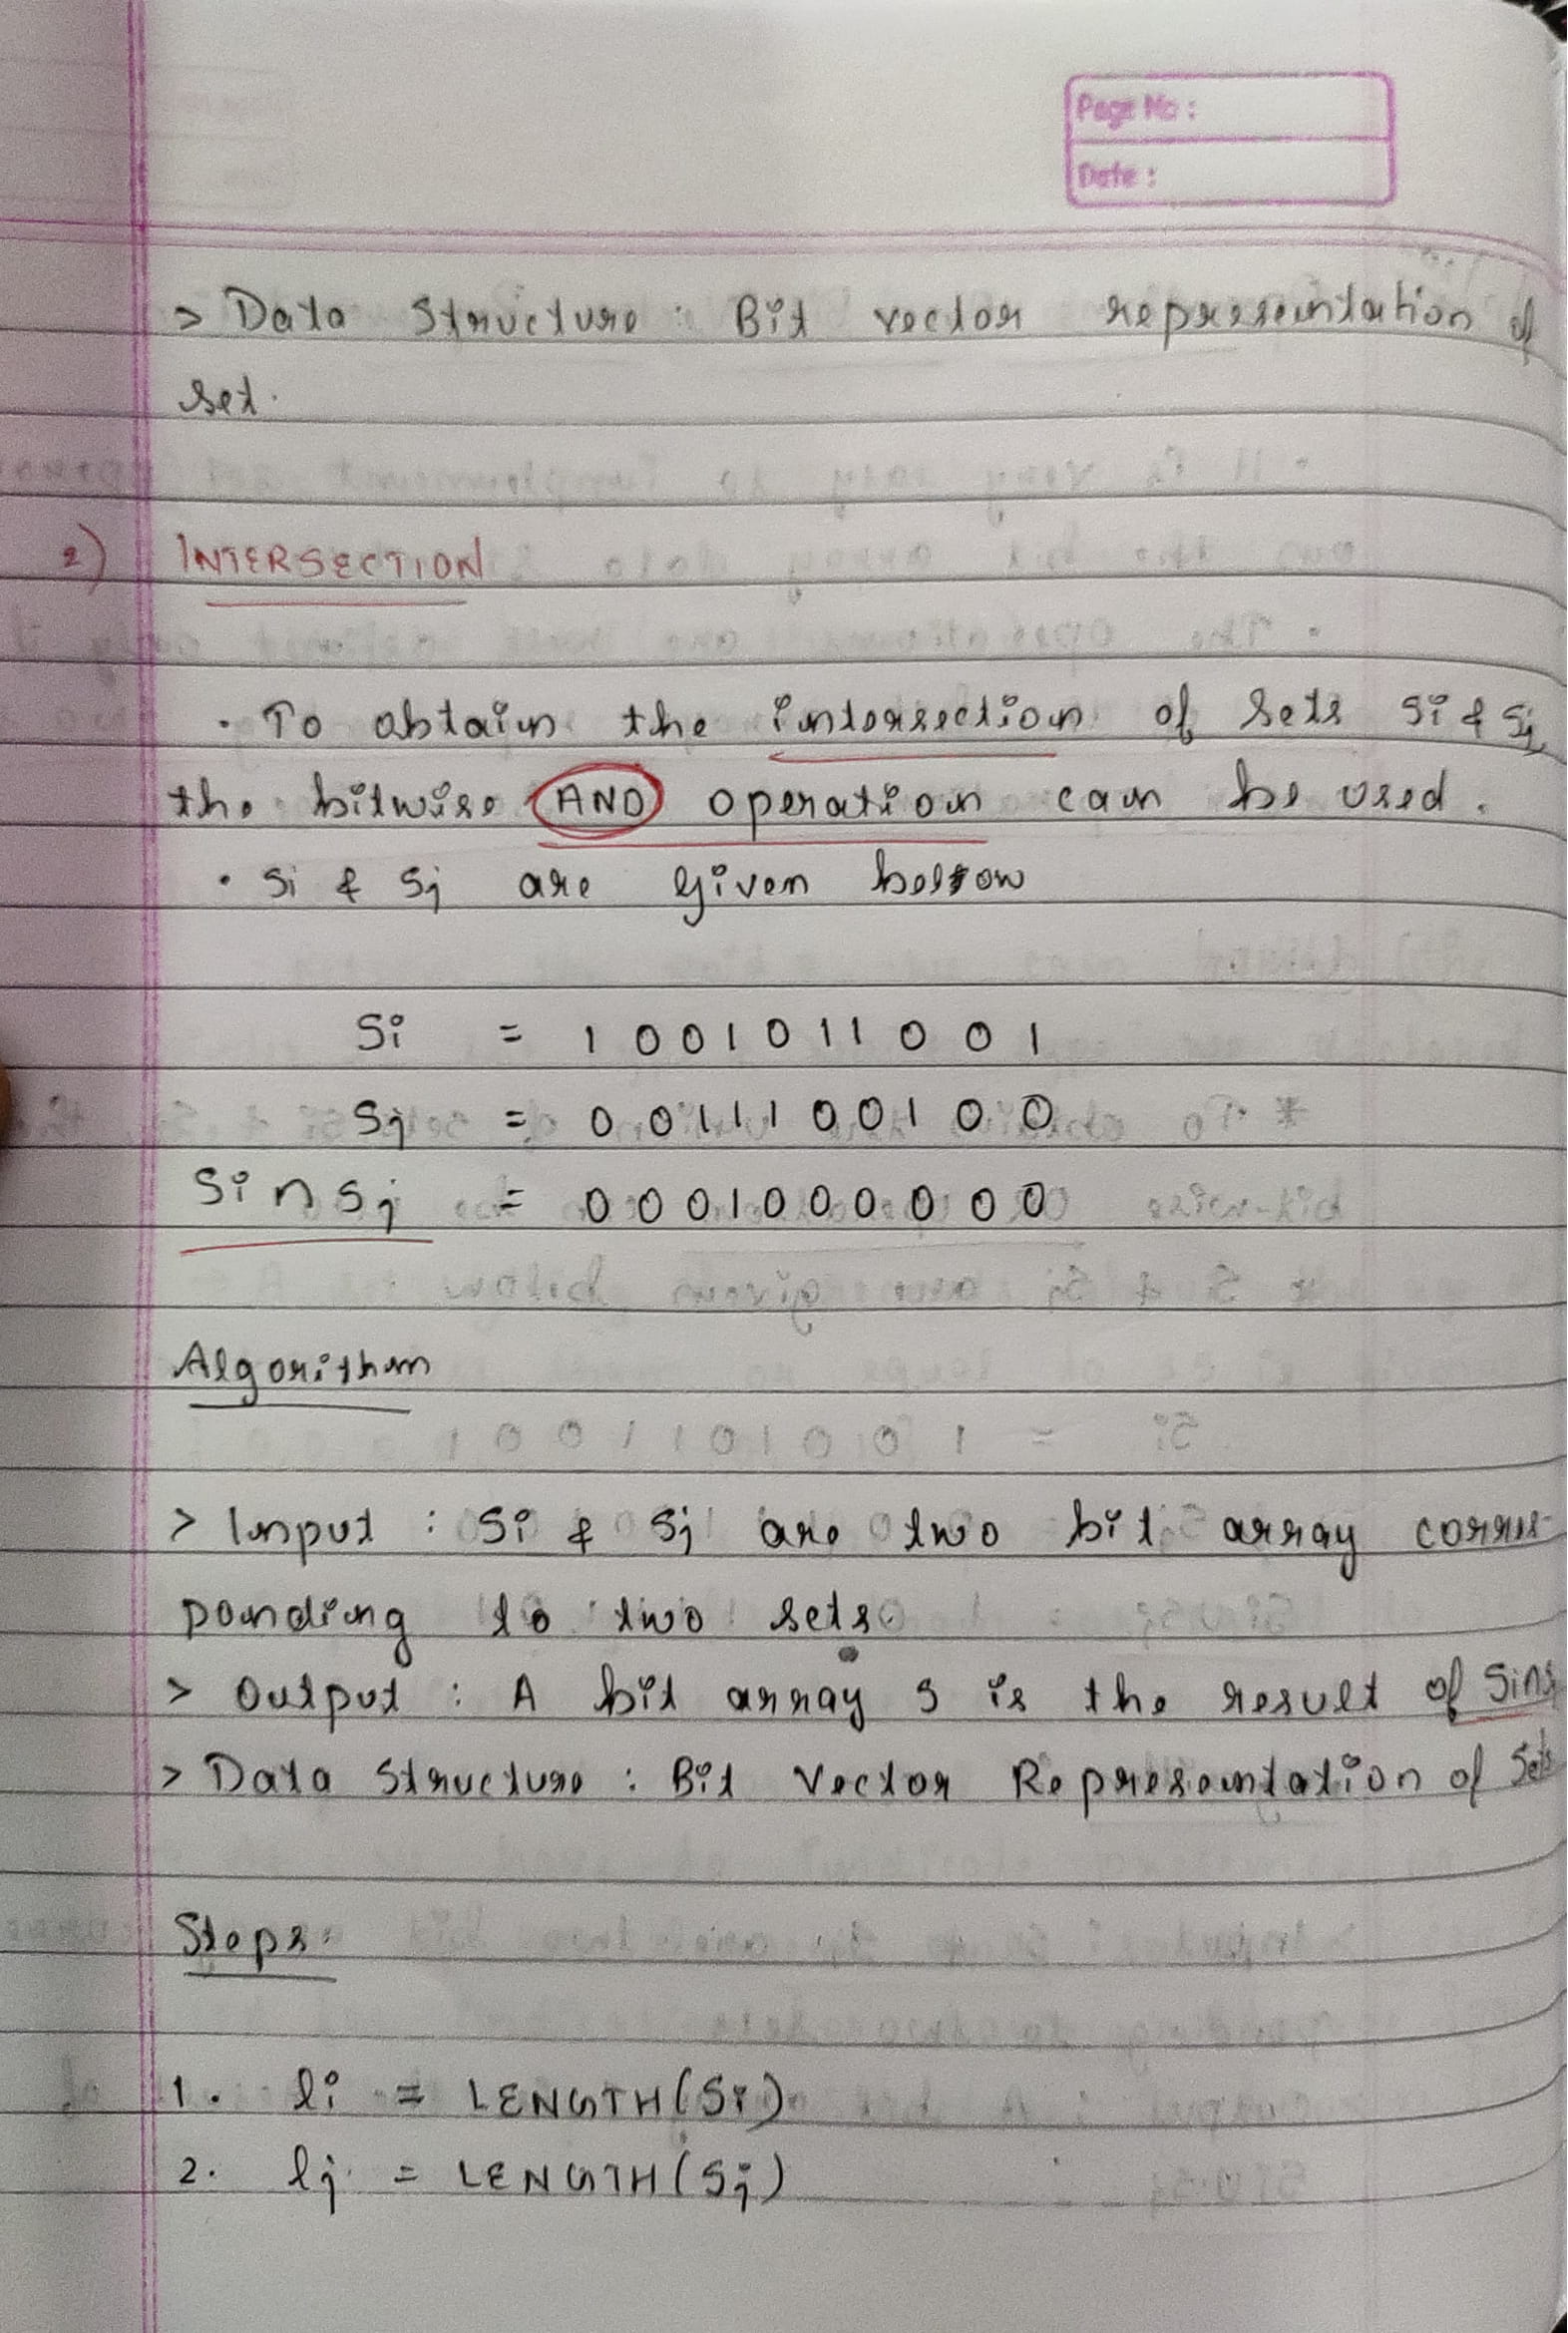 Page No :
Date :
> Data Structure : Bit vector representation of
set.
2) INTERSECTION
• To obtain the intersection of sets Si & Sj
the bitwise AND operation can be used.
• Si & Sj are given below
Si = 1 0 0 1 0 1 1 0 0 1
Sj = 0 0 1 1 1 0 0 1 0 0
Si ∩ Sj = 0 0 0 1 0 0 0 0 0 0
Algorithm
> Input : Si & Sj are two bit array corres-
ponding to two sets.
> Output : A bit array S is the result of Si∩Sj
> Data Structure : Bit Vector Representation of Sets
Steps:
1. li = LENGTH(Si)
2. lj = LENGTH(Sj)